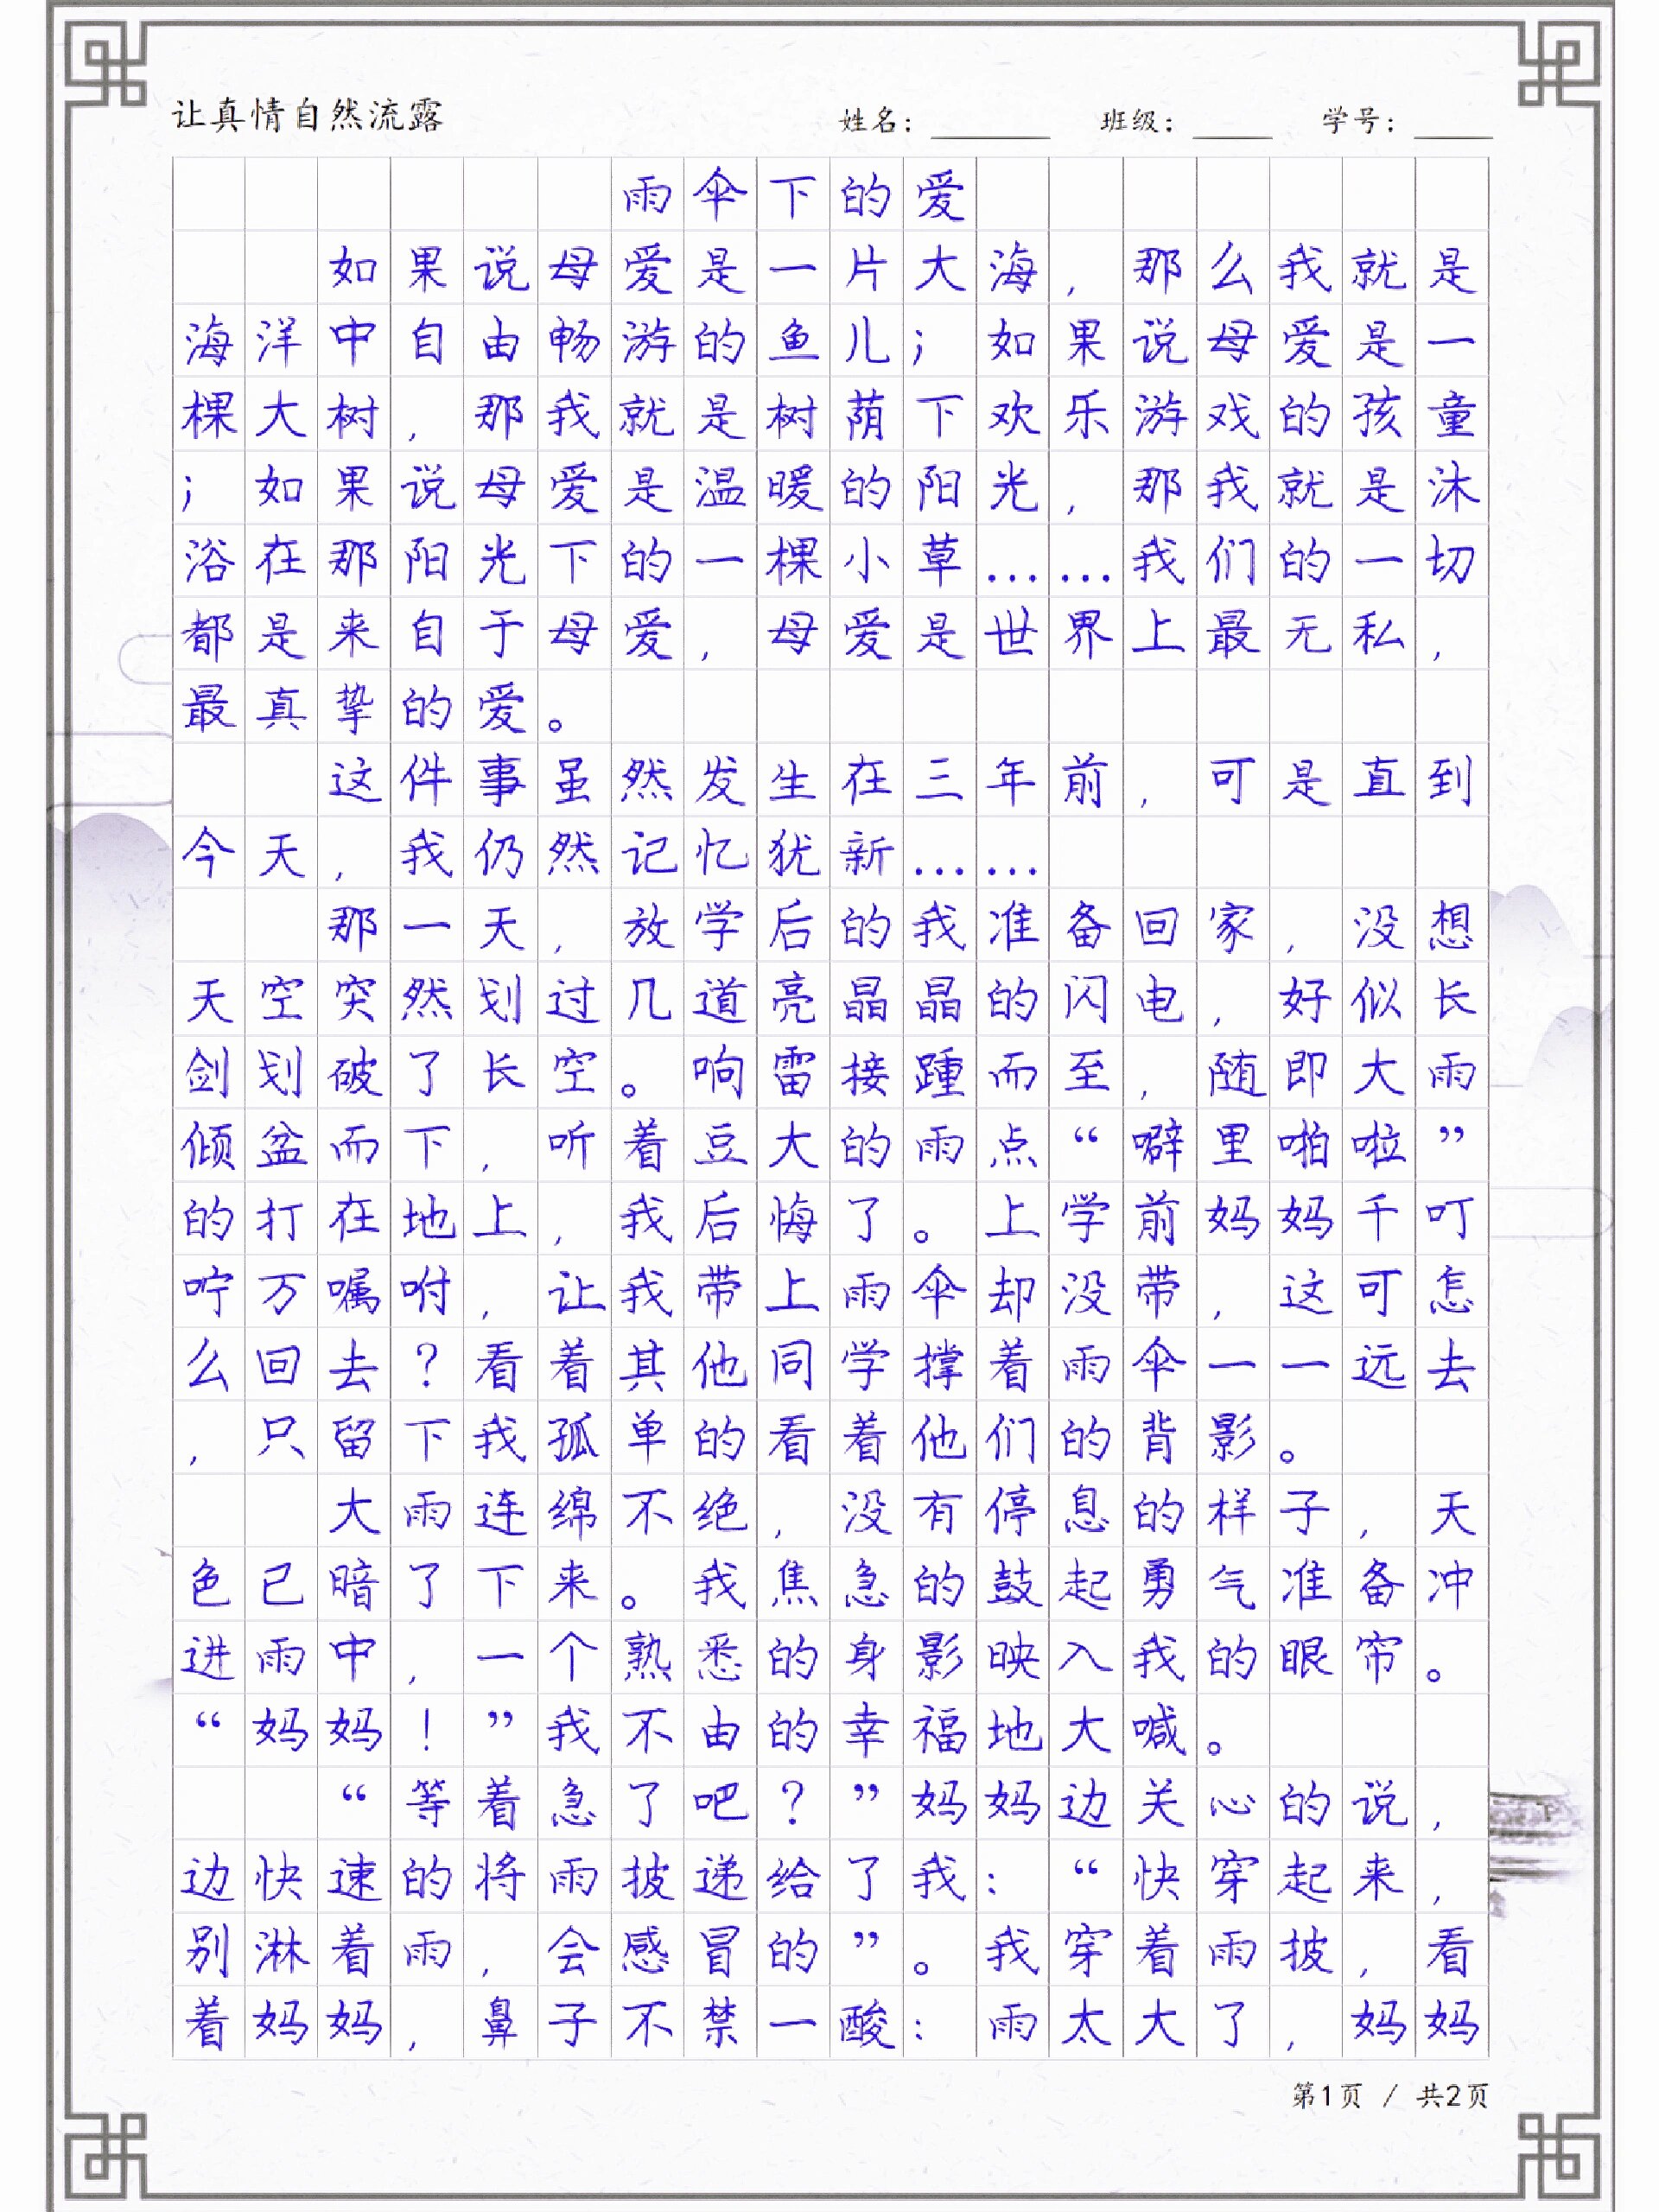 让真情自然流露 姓名：______ 班级：____ 学号：____
雨伞下的爱
如果说母爱是一片大海，那么我就是
海洋中自由畅游的鱼儿；如果说母爱是一
棵大树，那我就是树荫下欢乐游戏的孩童
；如果说母爱是温暖的阳光，那我就是沐
浴在那阳光下的一棵小草……我们的一切
都是来自于母爱，母爱是世界上最无私，
最真挚的爱。
这件事虽然发生在三年前，可是直到
今天，我仍然记忆犹新……
那一天，放学后的我准备回家，没想
天空突然划过几道亮晶晶的闪电，好似长
剑划破了长空。响雷接踵而至，随即大雨
倾盆而下，听着豆大的雨点“噼里啪啦”
的打在地上，我后悔了。上学前妈妈千叮
咛万嘱咐，让我带上雨伞却没带，这可怎
么回去？看着其他同学撑着雨伞一一远去
，只留下我孤单的看着他们的背影。
大雨连绵不绝，没有停息的样子，天
色已暗了下来。我焦急的鼓起勇气准备冲
进雨中，一个熟悉的身影映入我的眼帘。
“妈妈！”我不由的幸福地大喊。
“等着急了吧？”妈妈边关心的说，
边快速的将雨披递给了我：“快穿起来，
别淋着雨，会感冒的”。我穿着雨披，看
着妈妈，鼻子不禁一酸：雨太大了，妈妈
第1页 / 共2页